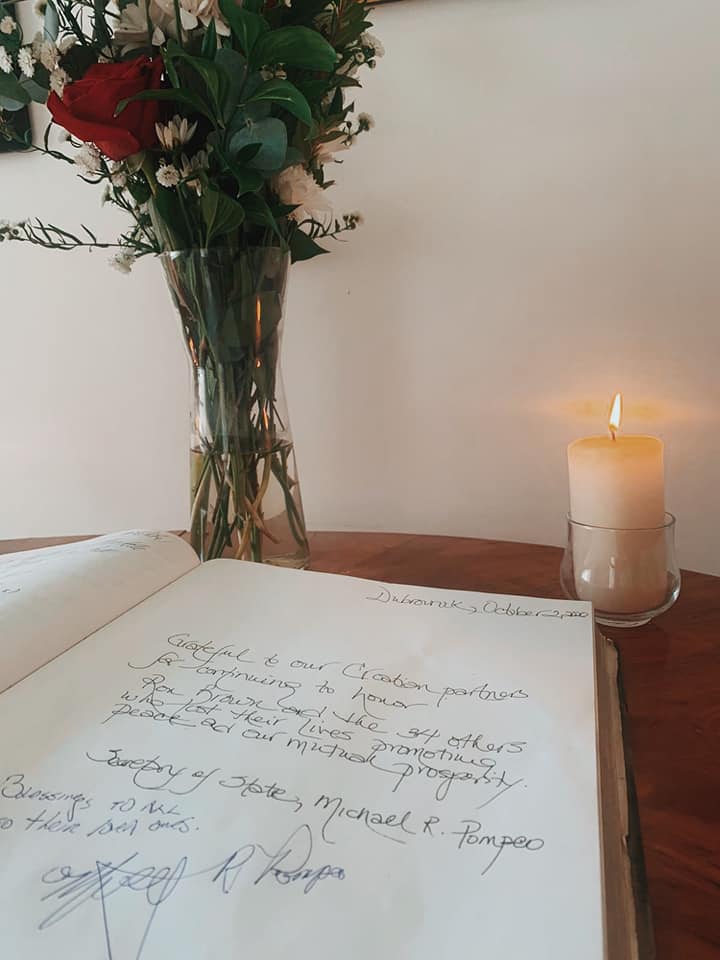 Dubrovnik, October 2, 2020
Grateful to our Croatian partners
for continuing to honor
Ron Brown and the 34 others
who lost their lives promoting
peace and our mutual prosperity.
Secretary of State, Michael R. Pompeo
Blessings to ALL
to their loved ones.
R Pompeo